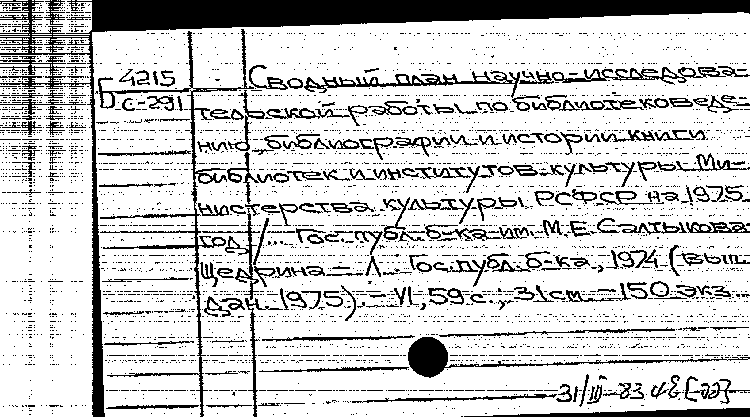 Б 4215
С-291
Сводный план научно-исследова-
тельской работы по библиотековеде-
нию, библиографии и истории книги
библиотек и институтов культуры Ми-
нистерства культуры РСФСР на 1975
год / ... Гос. публ. б-ка им. М.Е. Салтыкова-
Щедрина – Л. : Гос. публ. б-ка, 1974 (вып.
дан. 1975). – VI, 59 с. ; 31 см. – 150 экз.
31/III-83